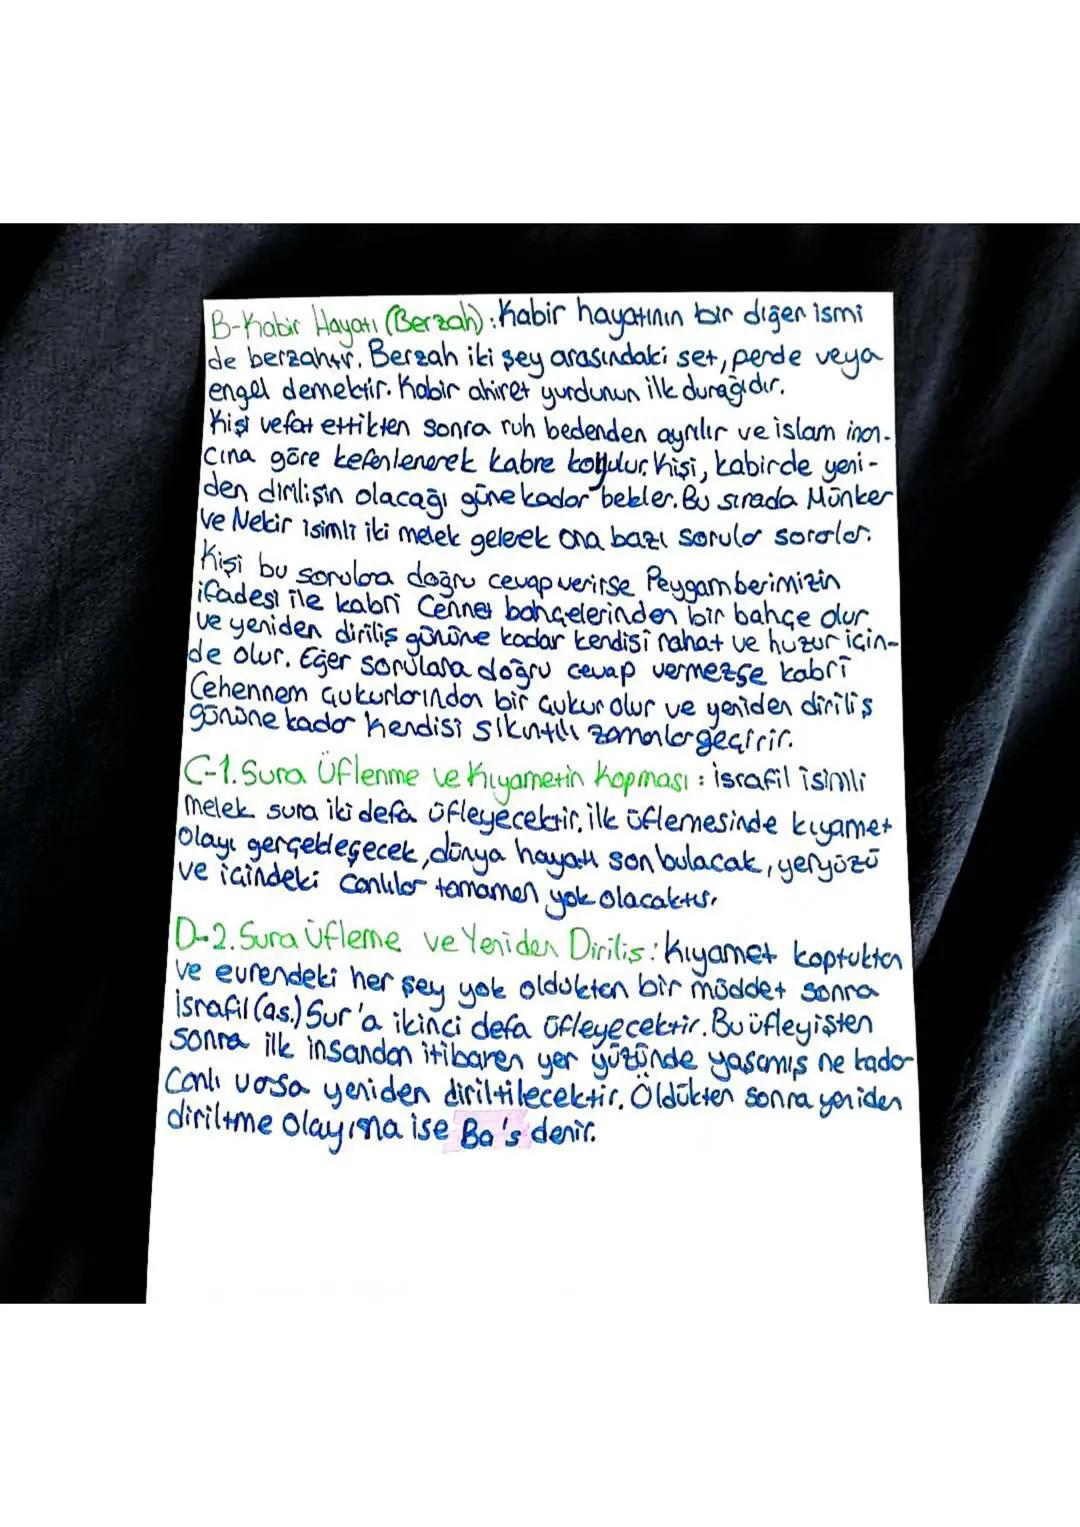 B-Kabir Hayatı (Berzah): Kabir hayatının bir diğer ismi
de berzahtır. Berzah iki şey arasındaki set, perde veya
engel demektir. Kabir ahiret yurdunun ilk durağıdır.
Kişi vefat ettikten sonra ruh bedenden ayrılır ve islam inan-
cına göre kefenlenerek kabre koyulur. Kişi, kabirde yeni-
den dirilişin olacağı güne kadar bekler. Bu sırada Münker
ve Nekir isimli iki melek gelerek ona bazı sorular sorarlar.
Kişi bu sorulara doğru cevap verirse Peygamberimizin
ifadesi ile kabri Cennet bahçelerinden bir bahçe olur
ve yeniden diriliş gününe kadar kendisi rahat ve huzur için-
de olur. Eğer sorulara doğru cevap vermezse kabri
Cehennem çukurlarından bir çukur olur ve yeniden diriliş
gününe kadar kendisi sıkıntılı zamanlar geçirir.
C-1. Sura Üflenme ve Kıyametin Kopması: israfil isimli
melek sura iki defa üfleyecektir. ilk üflemesinde kıyamet
olayı gerçekleşecek, dünya hayatı son bulacak, yeryüzü
ve içindeki canlılar tamamen yok olacaktır.
D-2. Sura Üfleme ve Yeniden Diriliş: Kıyamet koptuktan
ve evrendeki her şey yok olduktan bir müddet sonra
israfil (a.s.) Sur'a ikinci defa üfleyecektir. Bu üfleyişten
sonra ilk insandan itibaren yer yüzünde yaşamış ne kadar
canlı varsa yeniden diriltilecektir. Öldükten sonra yeniden
diriltme olayına ise Ba's denir.